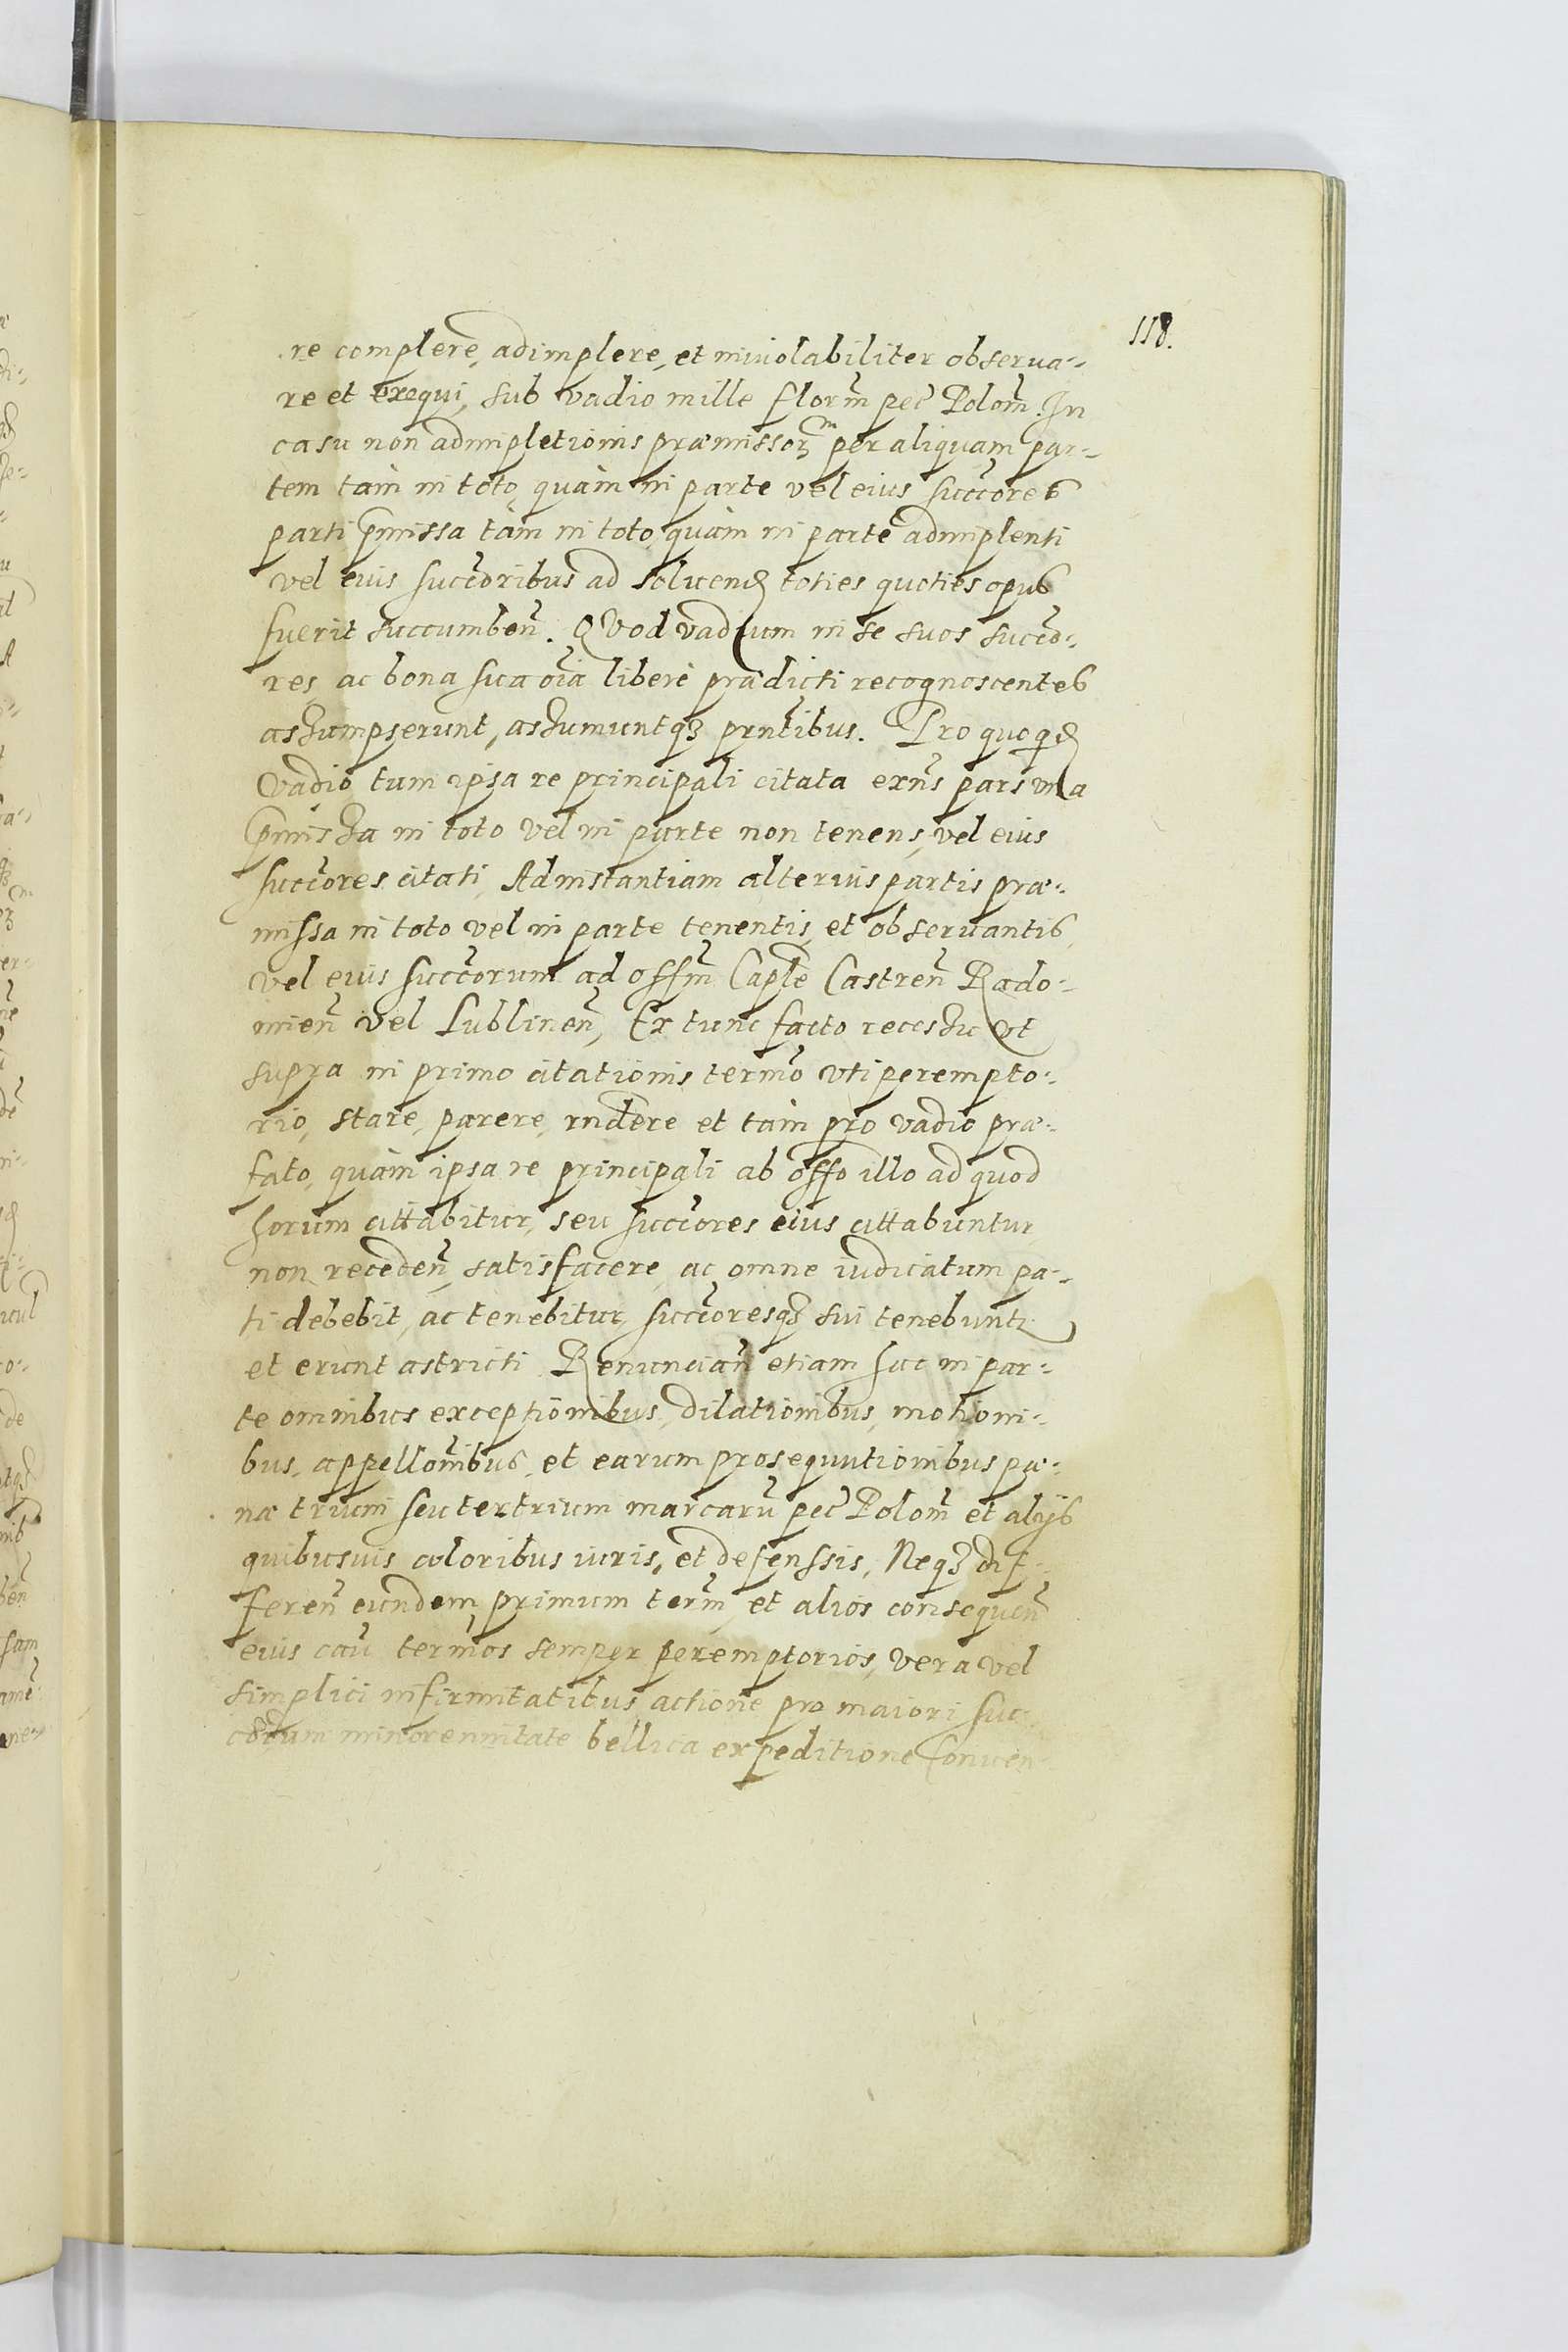 118.
re complere, adimplere, et inuiolabiliter obserua-
re et exequi, sub vadio mille florm̃ pec̃ Polom̃. In
casu non adimpletionis præmissorꝫ per aliquam par-
tem tàm in toto, quàm in parte vel eius succ̃ores
parti p̃missa tàm in toto, quàm in parte adimplenti
vel eius succ̃oribus ad soluend̃ toties quoties opus
fuerit succumben̄. Quod vadium in se suos succ̃o-
res ac bona sua oĩa liberè prædicti recognoscentes
assumpserunt, assumuntqꝫ prñtibus. Pro quo quid̃
vadio tum ipsa re principali citata exñs pars vna
p̃missa in toto vel in parte non tenens, vel eius
succ̃ores citati, Ad instantiam alterius partis præ-
missa in toto vel in parte tenentis, et obseruantis,
vel eius succ̃orum ad offm̃ Capłe Castren̄ Rado-
mien̄ vel Lublinen̄, Ex tunc facto recessu vt
supra in primo citationis termo̅ vti perempto-
rio, stare, parere, rñdere et tàm pro vadio præ-
fato, quàm ipsa re principali ab offo illo ad quod
horum cittabitur, seu succ̃ores eius cittabuntur
non receden̄, satisfacere, ac omne iudicatum pa-
ti debebit, ac tenebitur, succ̃oresqꝫ sui tenebuntr
et erunt astricti. Renuncian̄ etiam hac in par-
te omnibus exceptiõnibus, dilationibus, motioni-
bus, appellom̃bus, et earum prosequutionibus pæ-
næ trium seu ter trium marcaru̅ pec̃ Polom̃ et alijs
quibusuis coloribus iuris, et defenssis, Neqꝫ dif-
feren̄ eundem primum term̃, et alios consequen̄
eius cau̅ termos semper peremptorios, vera vel
simplici infirmitatibus actione pro maiori suc-
corum minorennitate bellica expeditione Conuen-